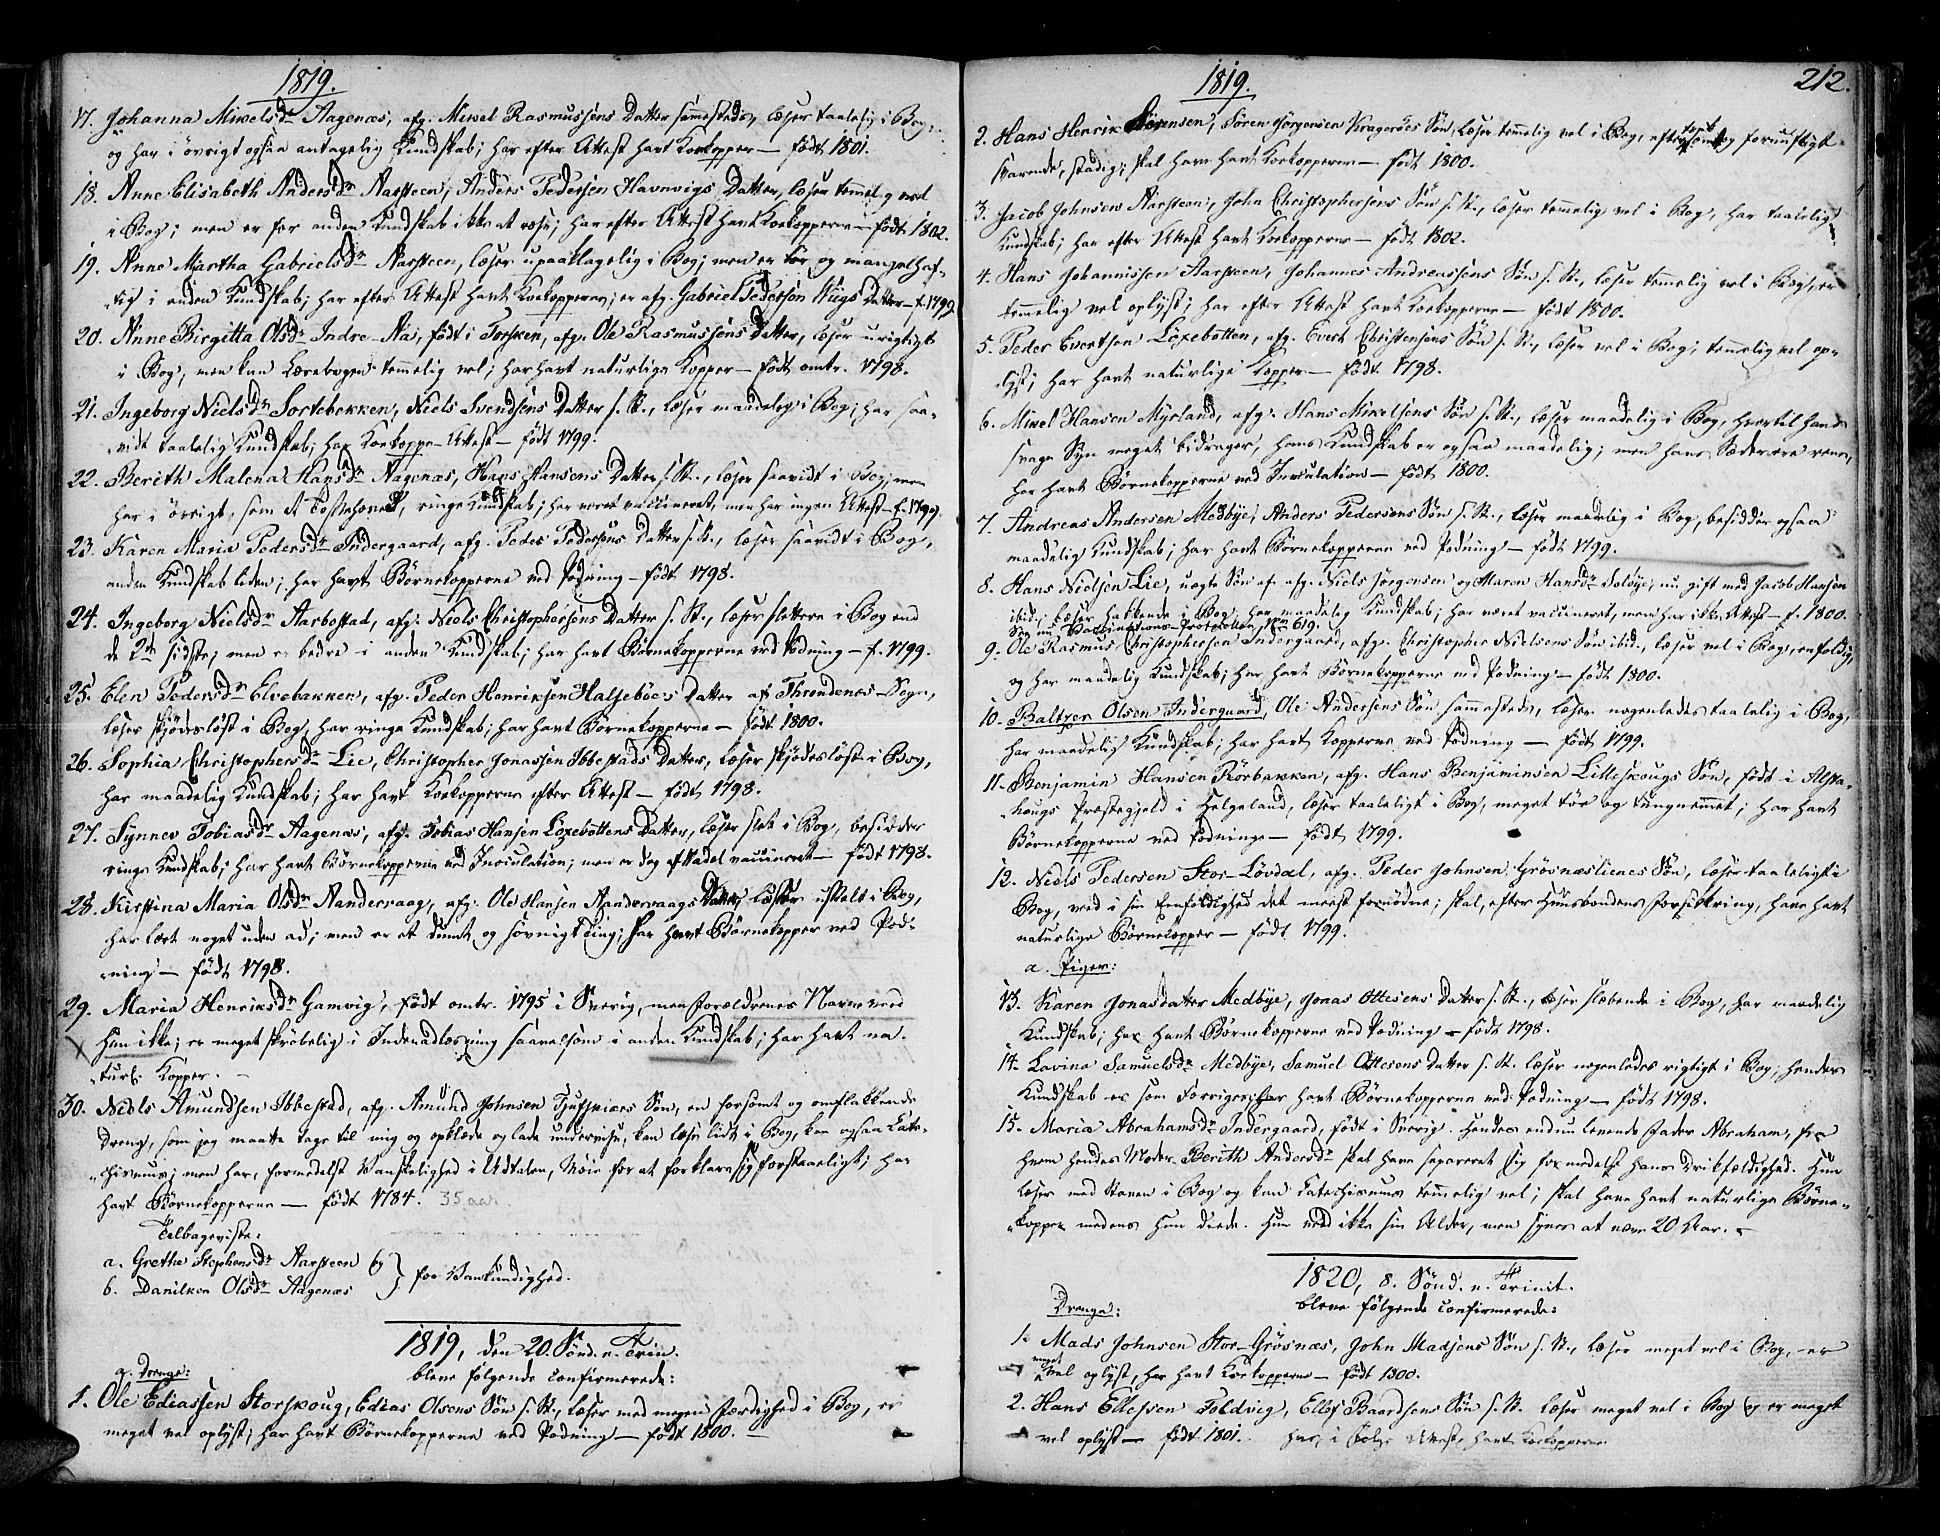 1819.
17. Johanna Mikelsdr Aagenæs, afg. Mikel Rasmussens Datter sammesteds, læser taalelig i Bog,
og har i övrigt ogsaa antagelig Kundskab; har efter Attest havt Koekopper — født 1801.
18. Anne Elisabeth Andersdr Aarsteen, Anders Pedersen Havnvigs Datter, læser temmelig vel
i Bog; men er for anden Kundskab ikke at rose; har efter Attest havt Koekopperne — født 1802.
19. Anne Martha Gabrielsdr Aarsteen, læser upaaklagelig i Bog; men er tör og mangelhaf-
tig i anden Kundskab; har efter Attest havt Koekopperne; er afg. Gabriel Pedersen Vugs Datter — f. 1799.
20. Anne Birgitta Olsdr Indre-Aa, født i Torsken, afg. Ole Rasmussens Datter, læser urigtigt
i Bog, men kan Lærebogen temmelig vel; har havt naturlige Kopper — født omtr. 1798.
21. Ingeborg Nielsdr Sortebekken, Niels Svendsens Datter s. St., læser maadelig i Bog; har saa-
vidt taalelig Kundskab; har Koekoppe-Attest — født 1799.
22. Berith Malena Hansdr Aagenæs, Hans Hansens Datter s. St., læser saavidt i Bog, men
har i övrigt, som et Tossehoved, ringe Kundskab; har været vaccineret, men har ingen Attest — f. 1799.
23. Karen Maria Pedersdr Indergaard, afg. Peder Pedersens Datter s. St., læser saavidt i Bog,
anden Kundskab liden; har havt Börnekopperne ved Podning — født 1798.
24. Ingeborg Nielsdr Aarbostad, afg. Niels Christophersens Datter s. St., læser slettere i Bog end
de 2de sidste; men er bedre i anden Kundskab; har havt Börnekopperne ved Podning — f. 1799.
25. Elen Pedersdr Elvebakken, afg. Peder Henriksen Halsebøes Datter af Throndenæs-Sogn,
læser skjødesløst i Bog, har ringe Kundskab; har havt Börnekopperne — født 1800.
26. Sophia Christophersdr Lie, Christopher Jonassen Ibbestads Datter, læser skjødesløst i Bog,
har maadelig Kundskab; har havt Koekopperne efter Attest — født 1798.
27. Synnev Tobiasdr Aagenæs, afg. Tobias Hansen Löxebottens Datter, læser slet i Bog, besidder
ringe Kundskab; har havt Börnekopperne ved Inoculation; men er dog af Kadel vaccineret — født 1798.
28. Kirstina Maria Olsdr Aandervaag, afg. Ole Hansen Aandervaags Datter, læser ustelt i Bog,
har lært noget uden ad; men er et dumt og søvnigt Ting; har havt Börnekopper ved Pod-
ning — født 1798.
29. Maria Henriksdr Gamvig, født omtr. 1795 i Sverig, men Forældrenes Navne veed
Hun ikke; er meget skröbelig i Indenadlæsning saavelsom i anden Kundskab; har havt na-
turl. Kopper. —
30. Niels Amundsen Ibbestad, afg. Amund Johnsen Tjufskiærs Søn, en forsömt og omflakkende
Dreng, som jeg maatte tage til mig og opklæde og lade undervise, kan læse lidt i Bog, kan ogsaa Cate-
chismus; men har, formedelst Vanskelighed i Udtalen, Möie for at forklare sig forstaaeligt; har
havt Börnekopperne — født 1784. 35 aar.
Tilbageviste:
a. Grethe Stephensdr Aarsteen og
b. Danilken Olsdr Aagenæs } for Vankundighed.
1819, den 20. Sönd. n. Trin.
bleve følgende confirmerede:
a. Drenge:
1. Ole Ediassen Storskoug, Edias Olsens Søn s. St., læser med megen Færdighed i Bog, er
meget vel oplyst; har havt Börnekopperne ved Podning — født 1800. —
1819.
212.
2. Hans Henrik Sörensen, Sören Jörgensen Kragerøes Søn, læser temmelig vel i Bog, og fornuftigt
svarende, stadig; skal have havt Koekopperne — født 1800.
3. Jacob Johnsen Aarsteen, John Christophersens Søn s. St., læser temmelig vel i Bog, har taalelig
Kundskab; har efter Attest havt Koekopperne — født 1802.
4. Hans Johannissen Aarsteen, Johannes Andreassens Søn s. St., læser temmelig vel i Bog, er
temmelig vel oplyst; har efter Attest havt Koekopperne — født 1800.
5. Peder Evertsen Löxebotten, afg. Evert Christensens Søn s. St., læser vel i Bog; temmelig vel op-
lyst; har havt naturlige Kopper — født 1798.
6. Mikel Hansen Myrland, afg. Hans Mikelsens Søn s. St., læser maadelig i Bog, hvortil hans
svage Syn meget bidrager, hans Kundskab er ogsaa maadelig; men hans Sæder ere rene,
har havt Börnekopperne ved Inoculation — født 1800.
7. Andreas Andersen Medbye, Anders Pedersens Søn s. St., læser maadelig i Bog, besidder ogsaa
maadelig Kundskab; har havt Börnekopperne ved Podning — født 1799.
8. Hans Nielsen Lie, uægte Søn af afg. Niels Jörgensen og Maren Hansdr Solbye, nu gift med Jacob Hansen
ibid.; læser hakkende i Bog, har maadelig Kundskab; har været vaccineret, men har ikke Attest — f. 1800.
See min Vaccinations-Protocollen, No 619.
9. Ole Rasmus Christophersen Indergaard, afg. Christopher Nielsens Søn ibid., læser vel i Bog, enfoldig,
og har maadelig Kundskab; har havt Börnekopperne ved Podning — født 1800.
10. Baltzer Olsen Indergaard, Ole Andersens Søn sammesteds, læser nogenledes taalelig i Bog,
har maadelig Kundskab; har havt Kopperne ved Podning — født 1799.
11. Benjamin Hansen Rörbakken, afg. Hans Benjaminsen Lilleskougs Søn, født i Alsta-
hougs Præstegjeld i Helgeland, læser taaleligt i Bog, meget tör og tungnemmet; har havt
Börnekopperne ved Podning — født 1799.
12. Niels Pedersen Stor-Lövdal, afg. Peder Johnsen Grösnæslienes Søn, læser taaleligt i
Bog, veed i sin Eenfoldighed det meest fornödne; skal, efter Huusbondens Forsikkring, have havt
naturlige Börnekopper — født 1799.
a. Piger:
13. Karen Jonasdatter Medbye, Jonas Ottesens Datter s. St., læser slæbende i Bog, har maadelig
Kundskab; har havt Börnekopperne ved Podning — født 1798.
14. Lavina Samuelsdr Medbye, Samuel Ottesens Datter s. St. læser nogenledes rigtigt i Bog, hendes
Kundskab er som Forriges; har havt Börnekopperne ved Podning — født 1798.
15. Maria Abrahamsdr Indergaard, født i Sverig. Hendes endnu levende Fader Abraham, fra
hvem hendes Moder Berith Andersdr skal have separeret sig formedelst hans Drikfældighed. Hun
læser med Staven i Bog og kan Catechismus temmelig vel; skal have havt naturlige Börne-
kopper medens hun diede. Hun veed ikke sin Alder, men synes at være 20 Aar. —
1820, 8. Sönd. n. Trinit.
bleve følgende confirmerede:
Drenge:
1. Mads Johnsen Stor-Grösnæs, John Madsens Søn s. St., læser meget vel i Bog, er
meget vel oplyst, har havt Koekopperne — født 1800.
2. Hans Ellefsen Foldvig, Ellef Baardsens Søn s. St. læser meget vel i Bog og er meget
vel oplyst — født 1801. har, i Følge Attest, havt Koekopperne.